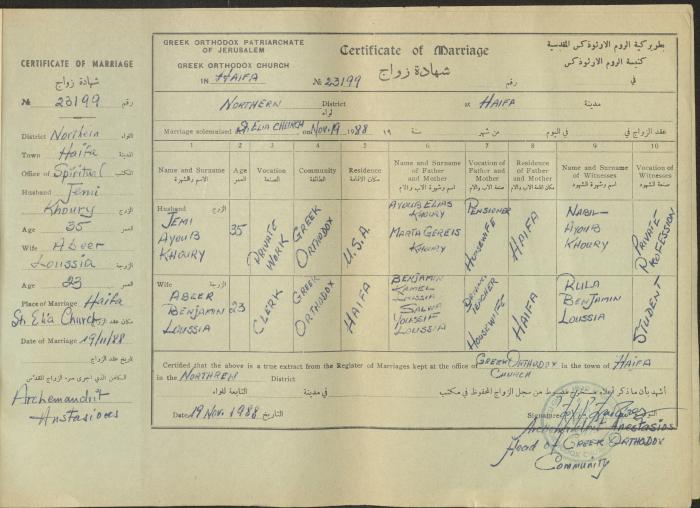 CERTIFICATE OF MARRIAGE
شهادة زواج
№ 23199 رقم
District Northern اللواء
Town Haifa المدينة
Office of Spiritual المكتب
Husband Jemi
Khoury الزوج
Age 35 العمر
Wife Abeer
Loussia الزوجة
Age 23 العمر
Place of Marriage Haifa
St. Elia Church مكان عقد الزواج
Date of Marriage 19/11/88
تاريخ عقد الزواج
Archemandrit
Anstasiores
GREEK ORTHODOX PATRIARCHATE
OF JERUSALEM
GREEK ORTHODOX CHURCH
IN HAIFA
Certificate of Marriage
شهادة زواج
№ 23199 رقم
بطريركية الروم الارثوذكس المقدسية
كنيسة الروم الارثوذكس
في
NORTHERN District لواء at HAIFA مدينة
Marriage solemnized St. ELIA CHURCH on Nov. 19 1988 ١٩ سنة من شهر في اليوم عقد الزواج في
1 2 3 4 5 6 7 8 9 10
Name and Surname الاسم والشهرة
Age العمر
Vocation الصنعة
Community الطائفة
Residence مكان الاقامة
Name and Surname of Father and Mother اسم وشهرة الاب والام
Vocation of Father and Mother صنعة الاب والام
Residence of Father and Mother مكان اقامة الاب والام
Name and Surname of Witnesses اسم وشهرة الشهود
Vocation of Witnesses صنعة الشهود
Husband الزوج
JEMI
AYOUB
KHOURY
35
PRIVATE WORK
GREEK ORTHODOX
U.S.A
AYOUB ELIAS
KHOURY
MARTA GEREIS
KHOURY
PENSIONER
HOUSEWIFE
HAIFA
NABIL
AYOUB
KHOURY
PRIVATE PROFESSION
Wife الزوجة
ABEER
BENJAMIN
LOUSSIA
23
CLERK
GREEK ORTHODOX
HAIFA
BENJAMIN
KAMEL
LOUSSIA
SALWA
YOUSSIF
LOUSSIA
TEACHER
HOUSEWIFE
HAIFA
RULA
BENJAMIN
LOUSSIA
STUDENT
Certified that the above is a true extract from the Register of Marriages kept at the office of GREEK ORTHODOX CHURCH in the town of HAIFA
in the NORTHREN District
أشهد بأن ما ذكر أعلاه مستخرج مضبوط من سجل الزواج المحفوظ في مكتب في مدينة التابعة للواء
Date 19 Nov. 1988 التاريخ
Signature
Archemandrit Anestasios
Head of GREEK ORTHODOX
Community